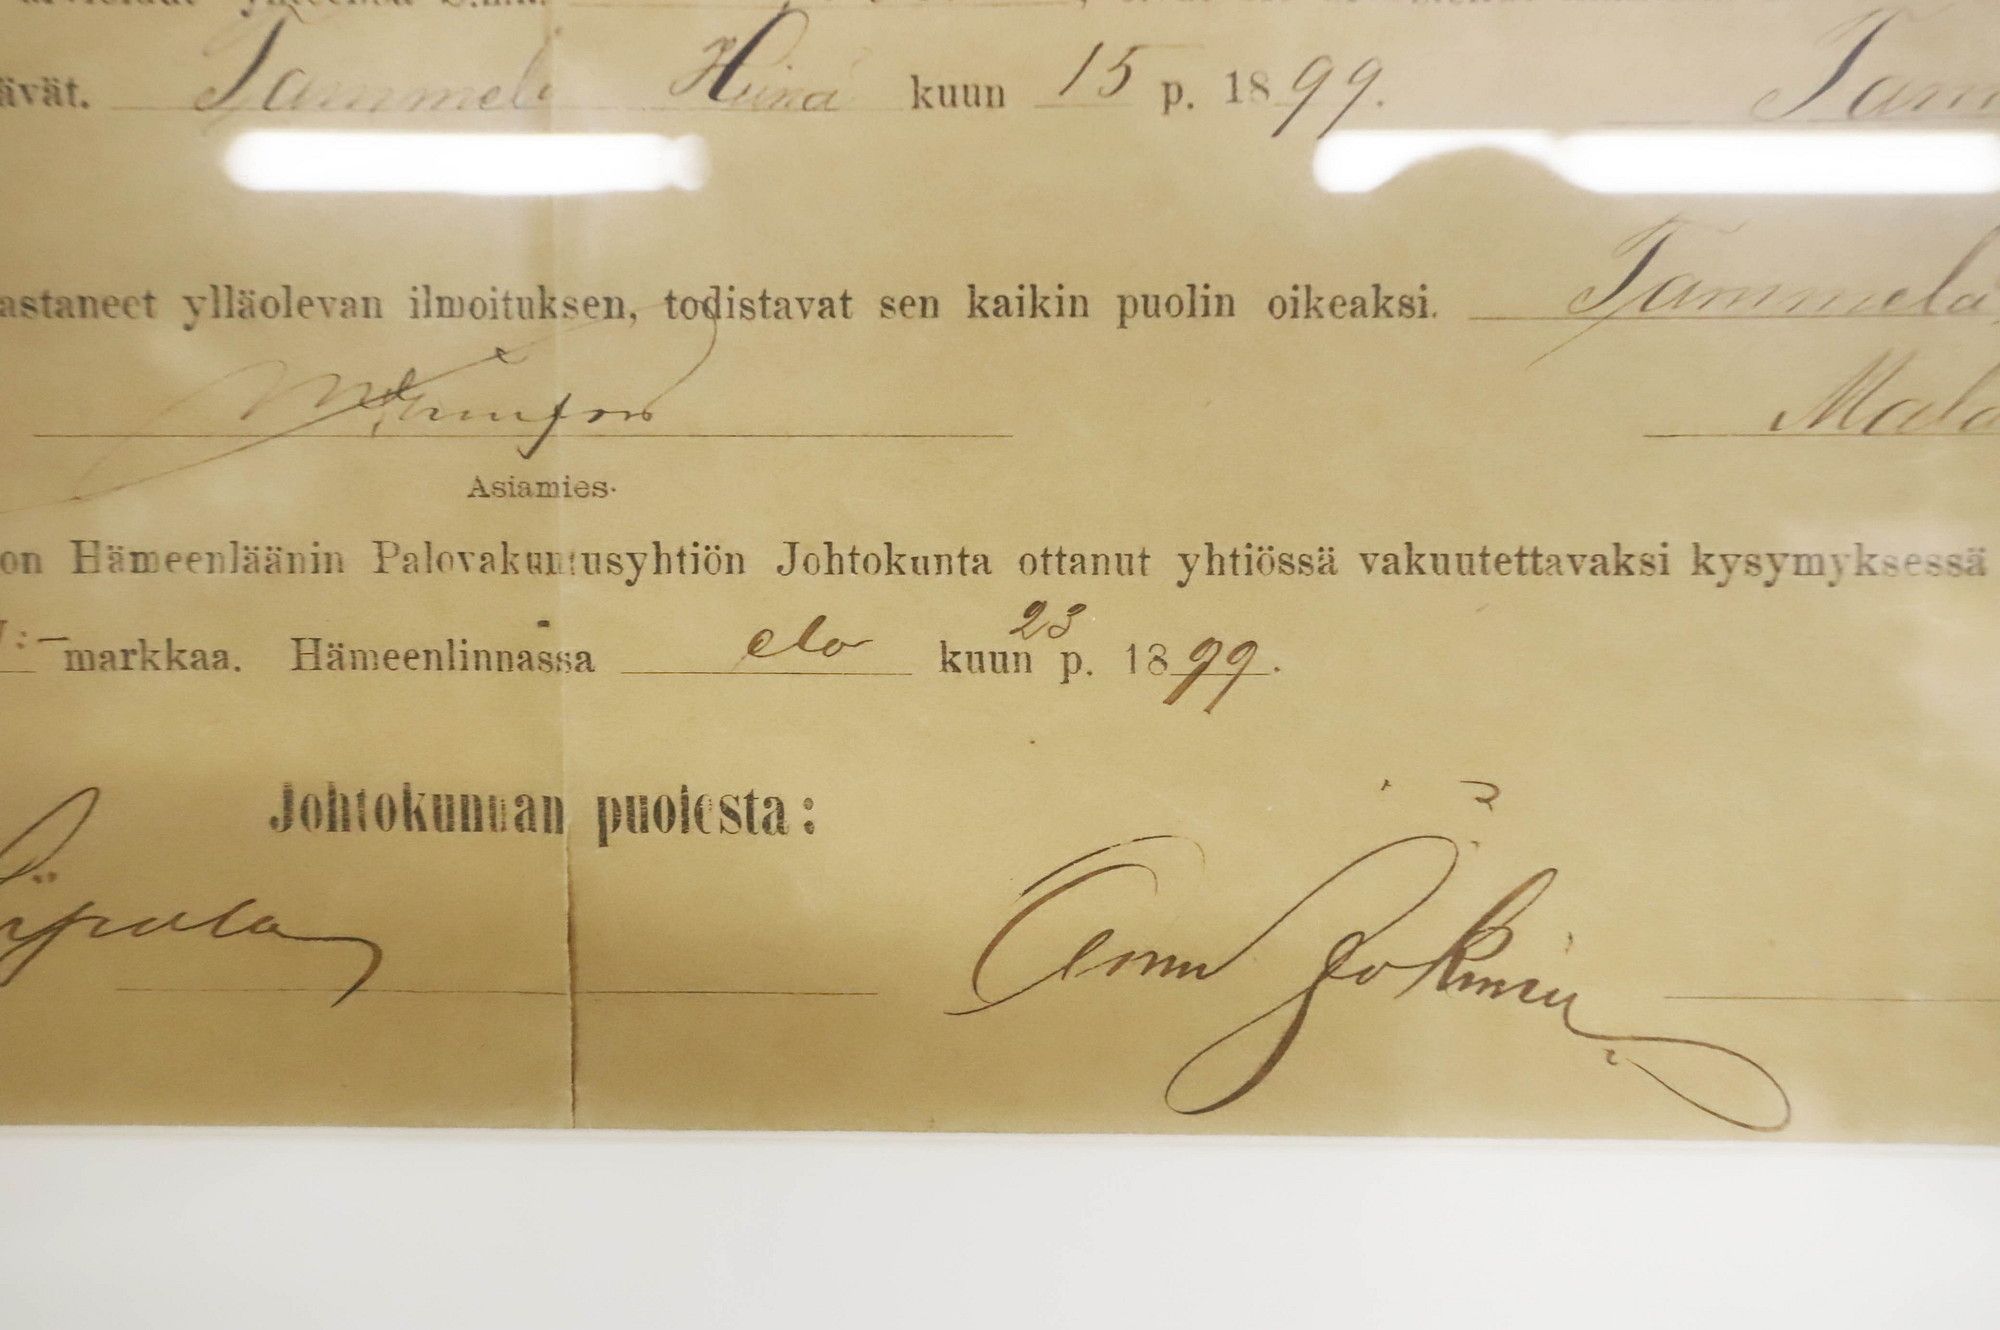 ävät. Tammela Heinä kuun 15 p. 1899. Tam
astaneet ylläolevan ilmoituksen, todistavat sen kaikin puolin oikeaksi. Tammela
Mala
Asiamies.
on Hämeenläänin Palovakuutusyhtiön Johtokunta ottanut yhtiössä vakuutettavaksi kysymyksessä
:— markkaa. Hämeenlinnassa elo kuun 23 p. 1899.
Johtokunnan puolesta: